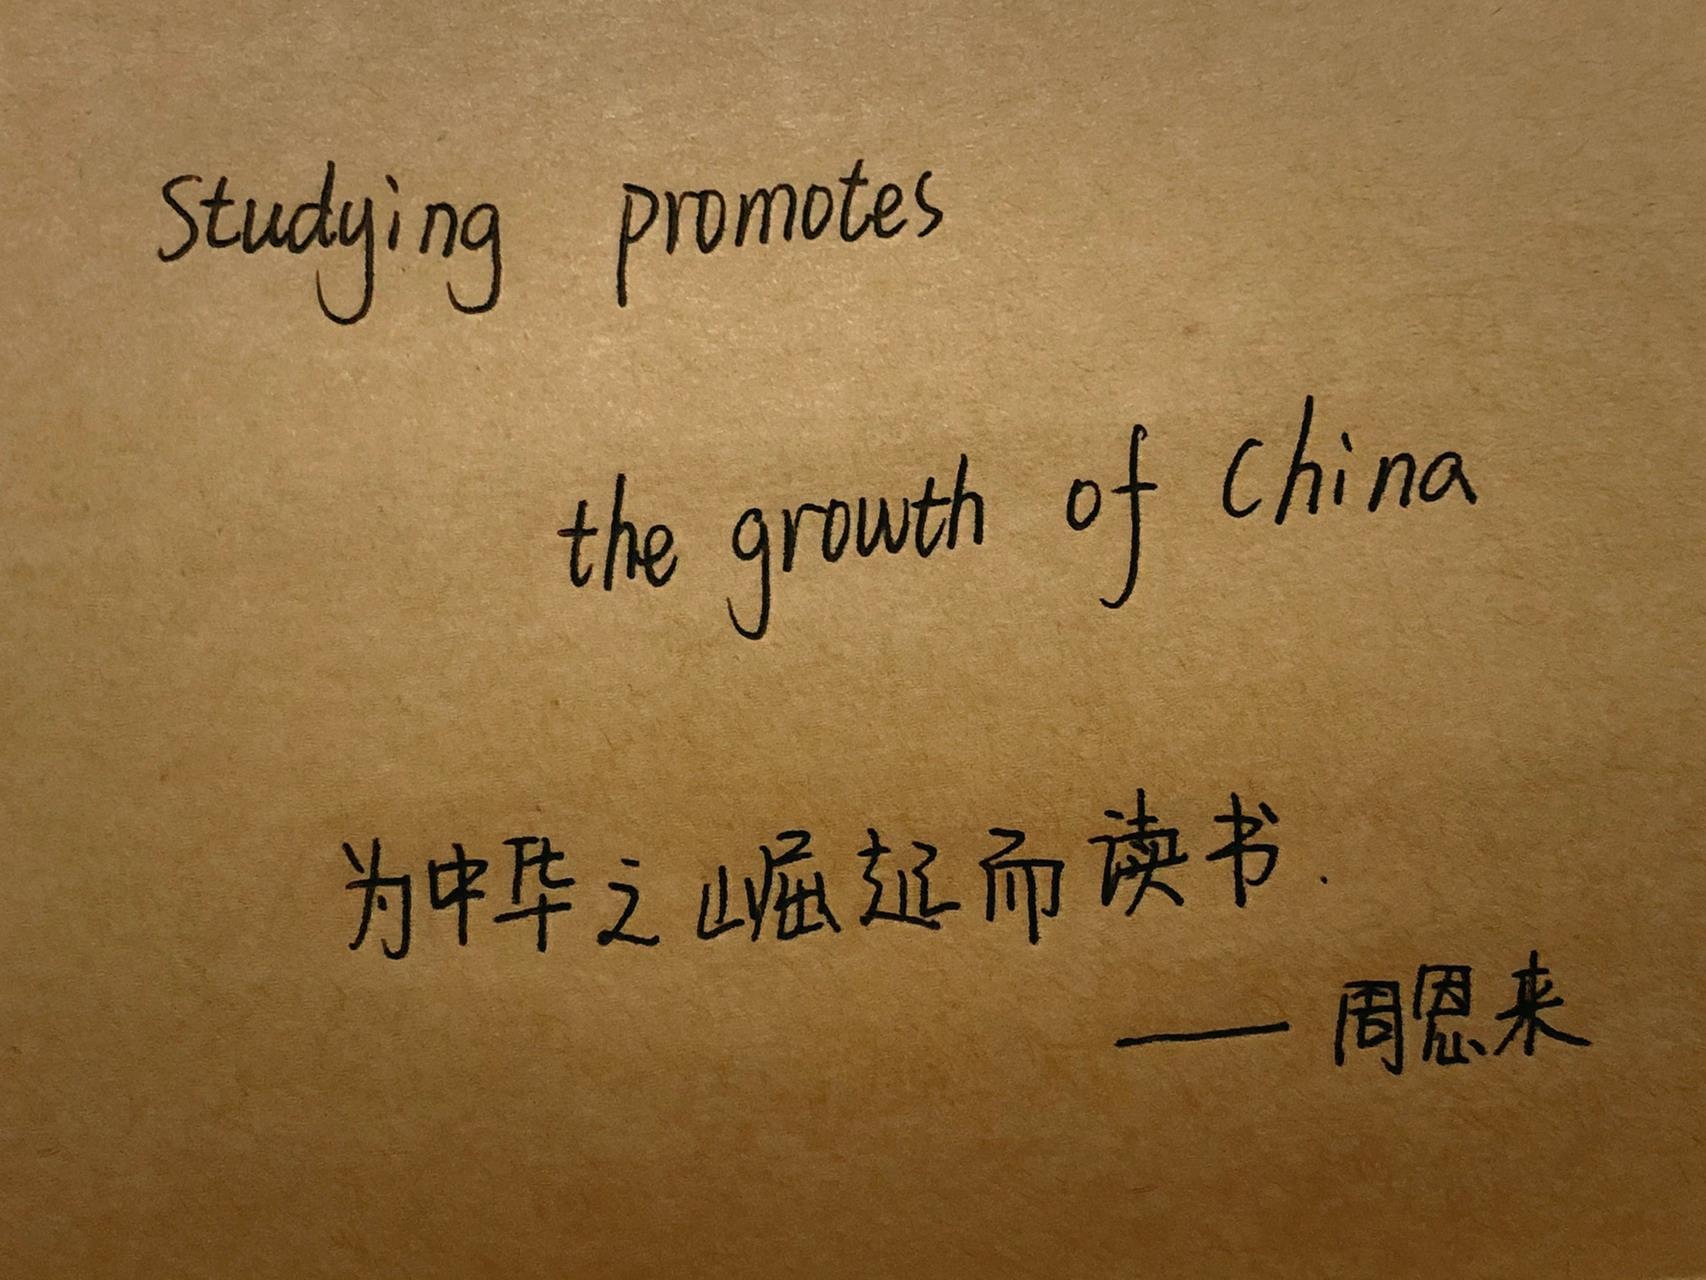 Studying promotes
the growth of China
为中华之崛起而读书.
—— 周恩来